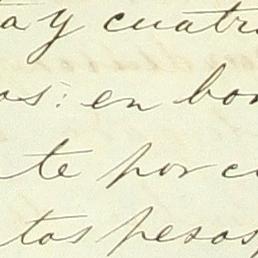 ta y cuatro
os: en bon
te por ci
tos pesos,